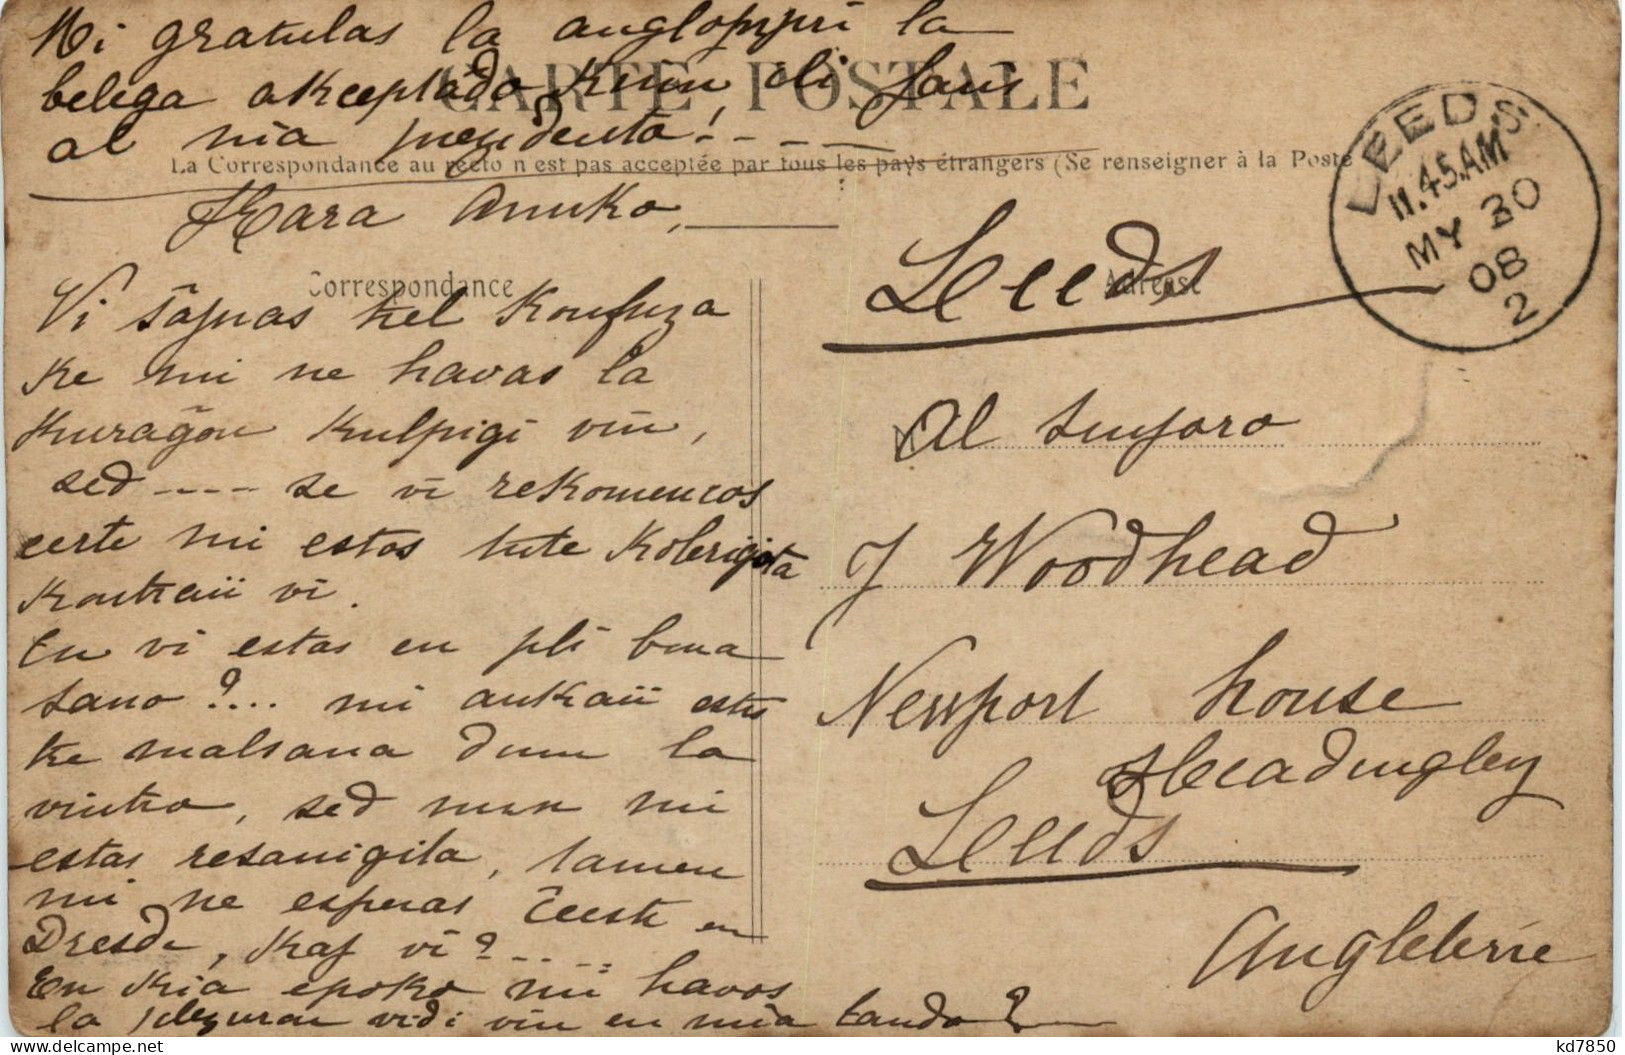 Mi gratulas la
belega akceptado kiun, oli faris
al nia prezidento! - - - -
CARTE POSTALE
La Correspondance au recto n'est pas acceptée par tous les pays étrangers (Se renseigner à la Poste
Kara Amiko,
Correspondance
Vi ŝajnas tiel konfuza
ke mi ne havas la
kuraĝon kulpigi vin,
sed ---- se vi rekomencos
certe mi estos tute kolerigita
kontraŭ vi.
Ĉu vi estas en pli bona
sano?... mi ankaŭ estis
tre malsana dum la
vintro, sed nun mi
estas resanigita, tamen
mi ne esperas ĉeesti en
Dresde, kaj vi? . . . .
En kia epoko mi havos
la plezuron vidi vin en mia lando?
Adresse
Leeds
Al Sinjoro
J Woodhead
Newport house
Headingley
Leeds
Angleterre
LEEDS
11.45.AM
MY 30
08
2
www.delcampe.net
kd7850